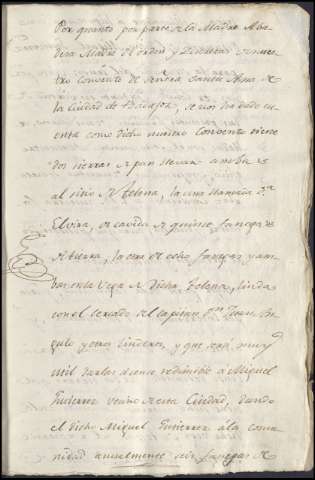 Por quanto por parte de la Madre Aba
desa Madre de orden y Discretas de nues
tro Convento de Señora Santa Ana de
la Ciudad de Badajoz, se nos ha dado cu
enta como dicho nuestro Convento tiene
dos tierras de pan llevar ambas
al sitio de Telena, la una llamada
Elvira, de cavida de quince fanegas
de tierra, la otra de ocho fanegas y am
bas en la Vega de Dicha Telena, linda
con el cercado del Capitan Dn. Juan
y otros linderos, y que será muy
util darlas a censo redimible a Miguel
Gutierrez vecino de esta Ciudad, dando
el dicho Miguel Gutierrez á la comu
nidad anualmente seis fanegas de